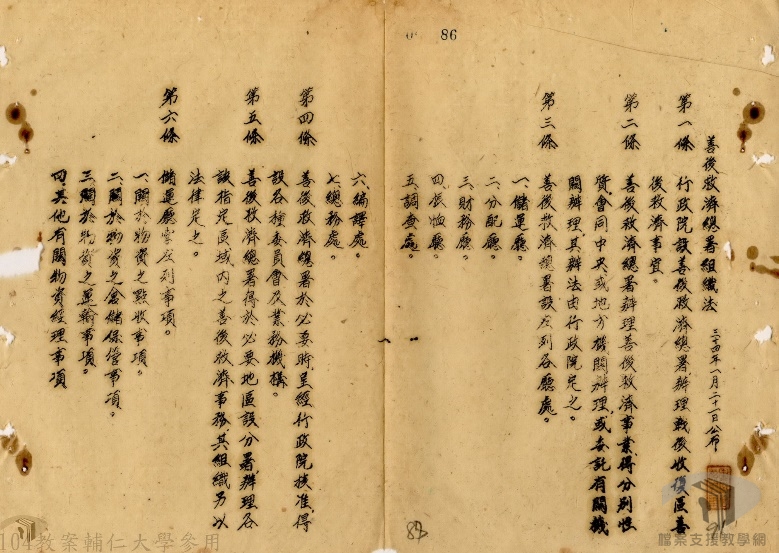 86
善後救濟總署組織法
三十四年一月二十一日公布
第一條 行政院設善後救濟總署辦理戰後收復區善
後救濟事宜。
第二條 善後救濟總署辦理善後救濟事業得分別性
質會同中央或地方機關辦理或委託有關機
關辦理其辦法由行政院定之。
第三條 善後救濟總署設左列各廳處。
一、儲運廳。
二、分配廳。
三、財務廳。
四、振恤廳。
五、調查處。
六、編譯處。
七、總務處。
第四條 善後救濟總署於必要時呈經行政院核准得
設各種委員會及業務機構。
第五條 善後救濟總署得於必要地區設分署辦理各
該指定區域內之善後救濟事務其組織另以
法律定之。
第六條 儲運廳掌左列事項。
一、關於物資之點收事項。
二、關於物資之倉儲保管事項。
三、關於物資之運輸事項。
四、其他有關物資經理事項
91
104教案輔仁大學參用
檔案支援教學網